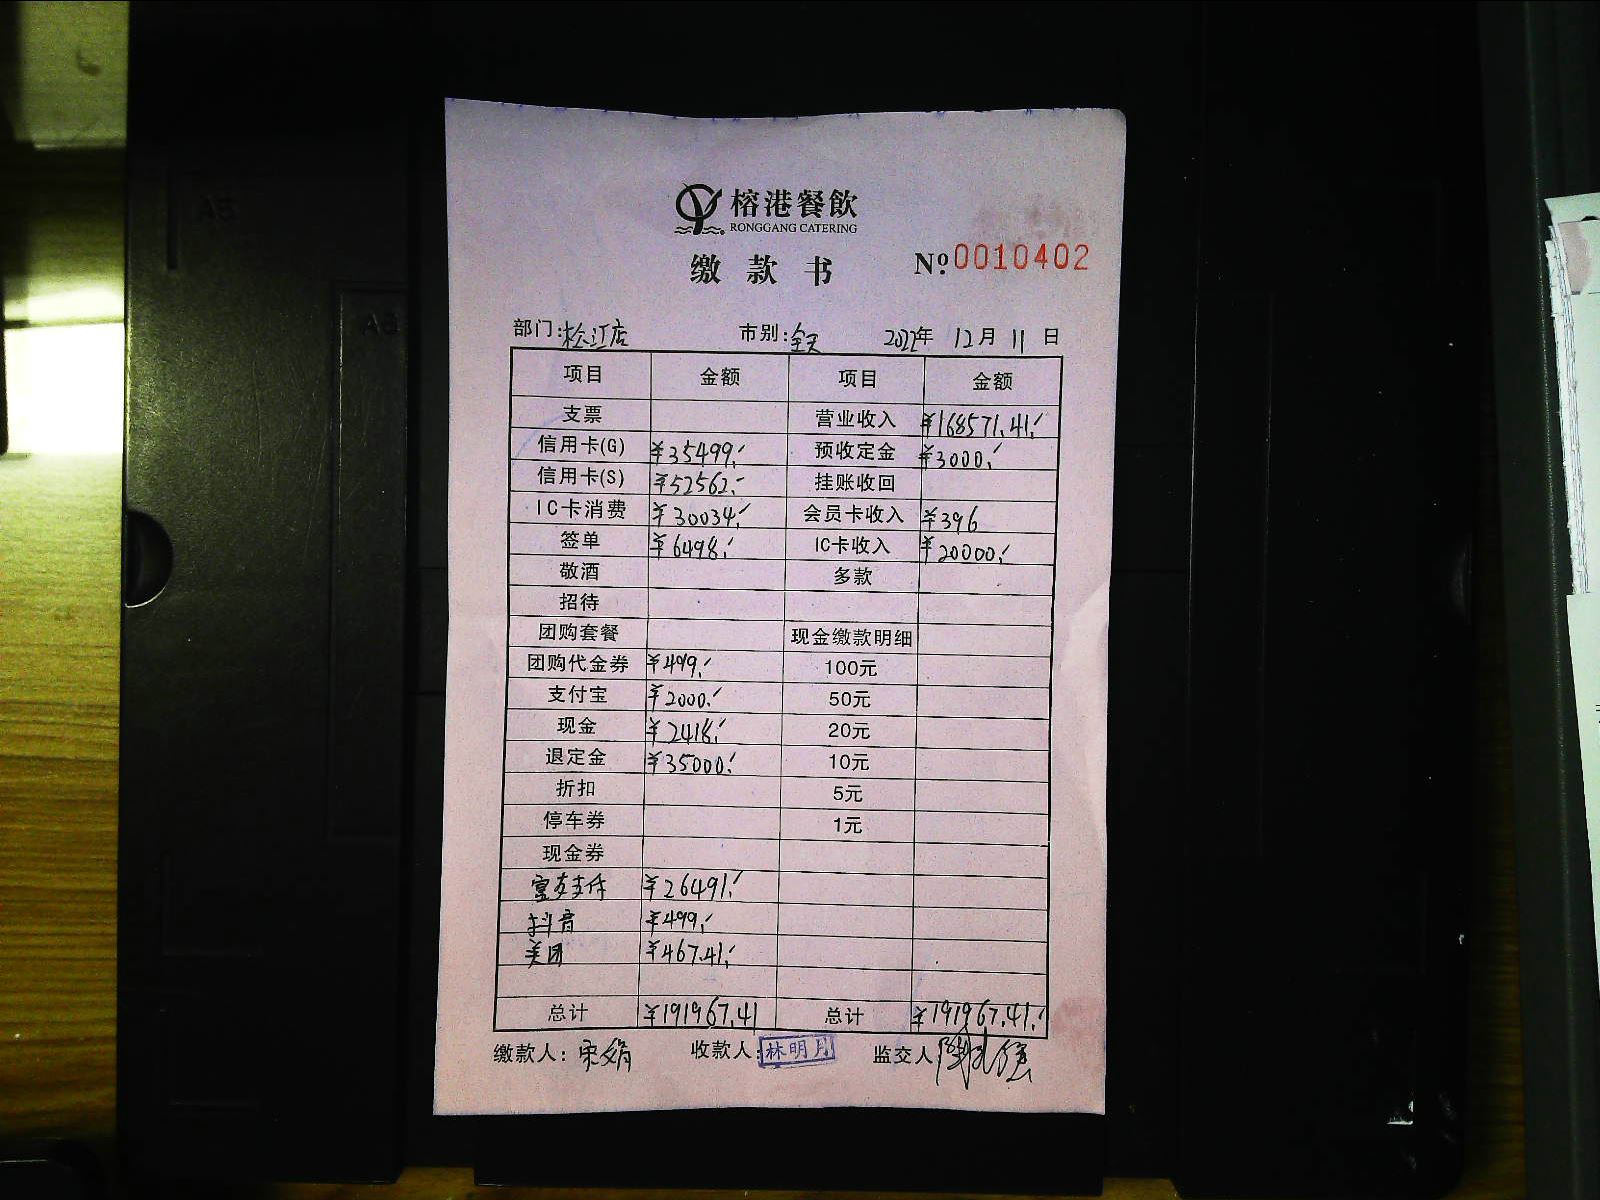 榕港餐飲
RONGGANG CATERING
缴款书 Nº0010402
部门:松江店 市别:全天 2022年 12月 11日
项目 金额 项目 金额
支票 营业收入 ¥168571.41
信用卡(G) ¥35499 预收定金 ¥3000
信用卡(S) ¥52562 挂账收回
IC卡消费 ¥30034 会员卡收入 ¥396
签单 ¥6498 IC卡收入 ¥20000
敬酒 多款
招待
团购套餐 现金缴款明细
团购代金券 ¥499 100元
支付宝 ¥2000 50元
现金 ¥2418 20元
退定金 ¥35000 10元
折扣 5元
停车券 1元
现金券
支付 ¥26491
抖音 ¥499
美团 ¥467.41
总计 ¥191967.41 总计 ¥191967.41
缴款人:宋娟 收款人:林明月 监交人
A5
A6